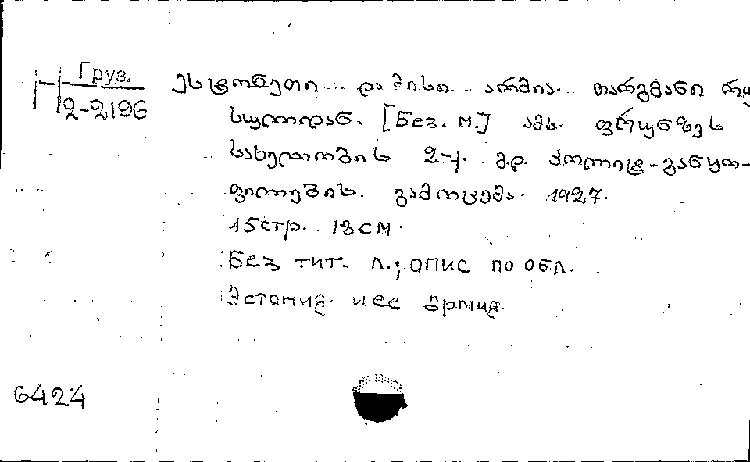 Груз.
2-2196
ესტონეთი და მისი არმია. თარგმანი რუ
სულიდან. [Без. м.] ამხ. ფრუნზეს
სახელობის 2-ე. მ.დ. პოლიტ-განყო-
ფილების. გამოცემა. 1927.
15 стр. 18 см.
Без тит. л.; опис по обл.
Эстония. и ее армия.
6424